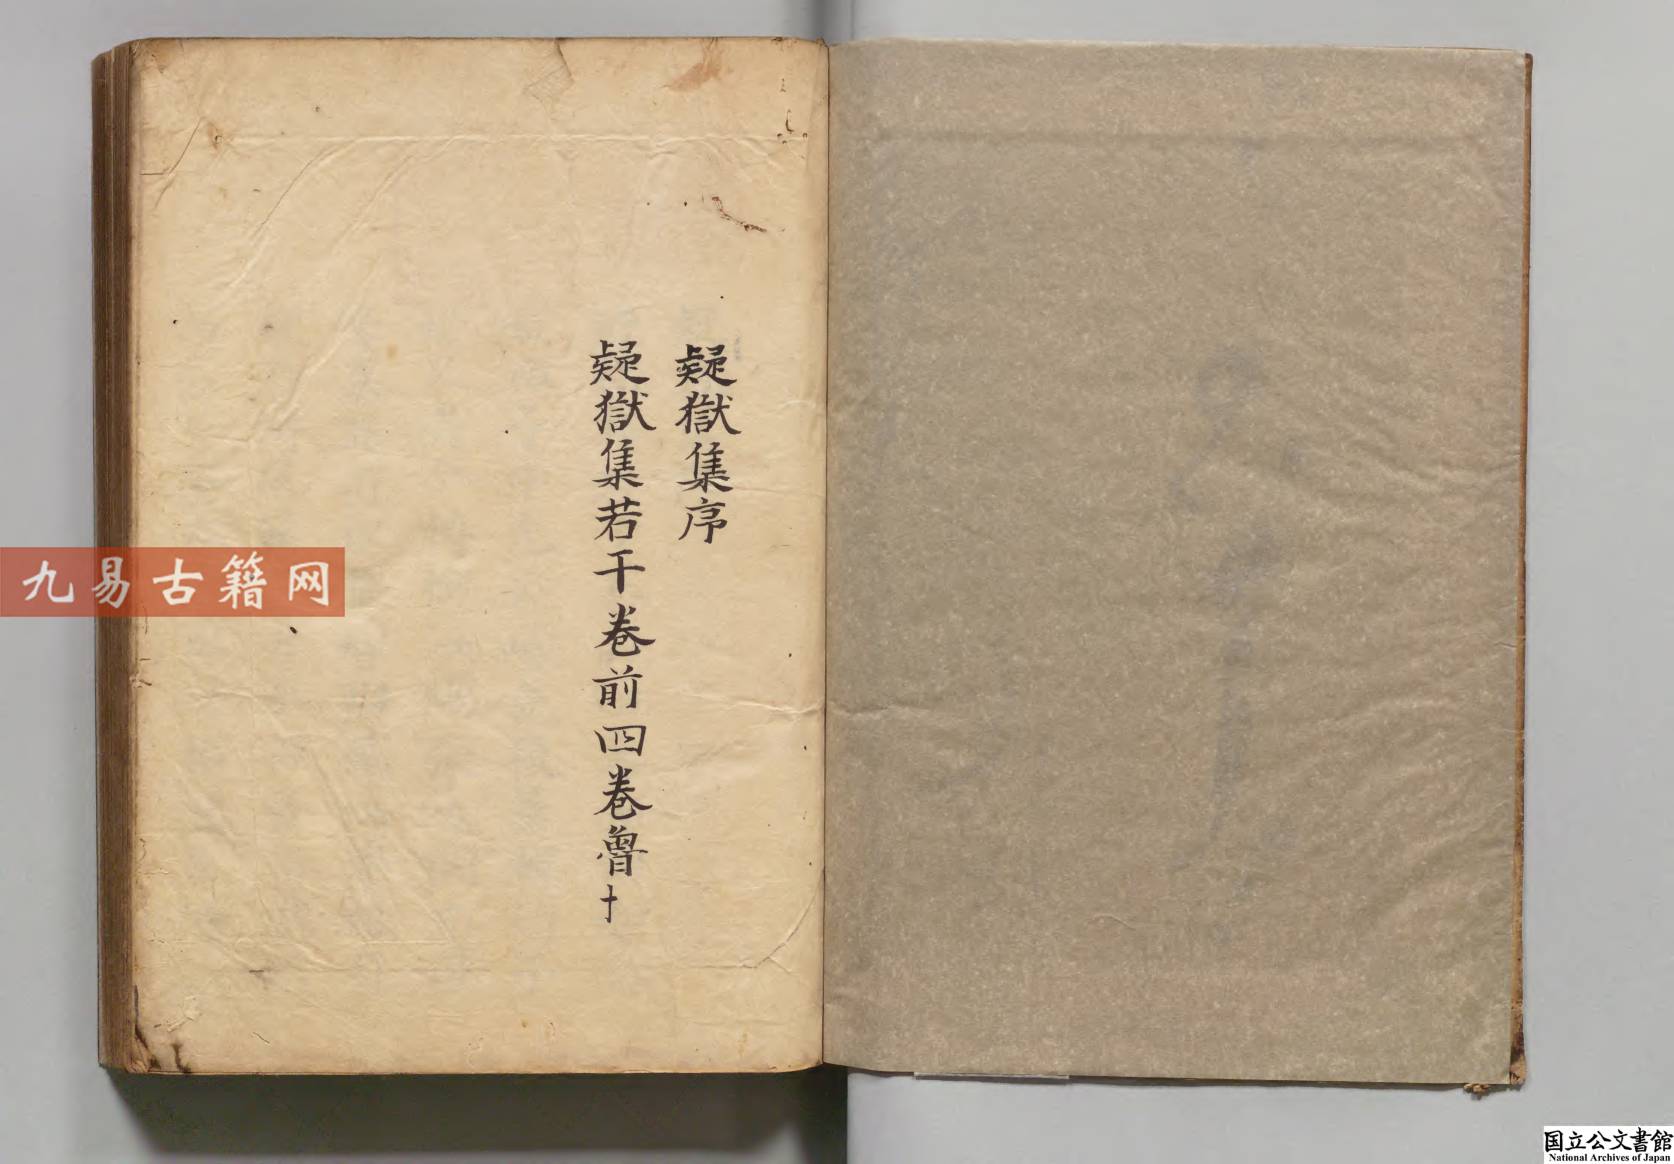 疑獄集序
疑獄集若干卷前四卷魯
九易古籍网
国立公文書館
National Archives of Japan